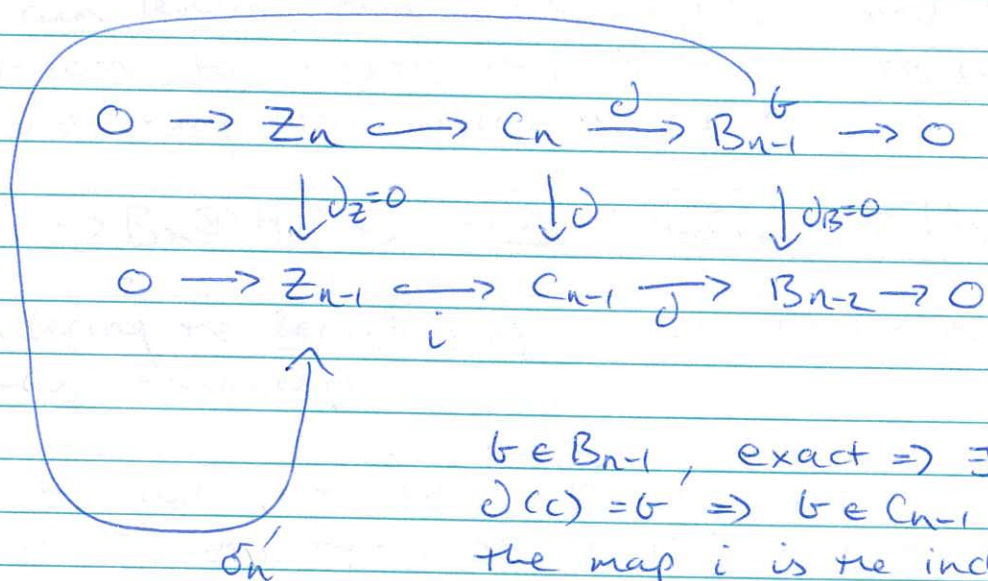 0 → Zₙ ↪ Cₙ —∂→ Bₙ₋₁ → 0
b
↓ ∂_Z=0 ↓ ∂ ↓ ∂_B=0
0 → Zₙ₋₁ ↪ Cₙ₋₁ —∂→ Bₙ₋₂ → 0
i
b ∈ Bₙ₋₁, exact => ∃
∂(c) = b => b ∈ Cₙ₋₁
δₙ' the map i is the inc